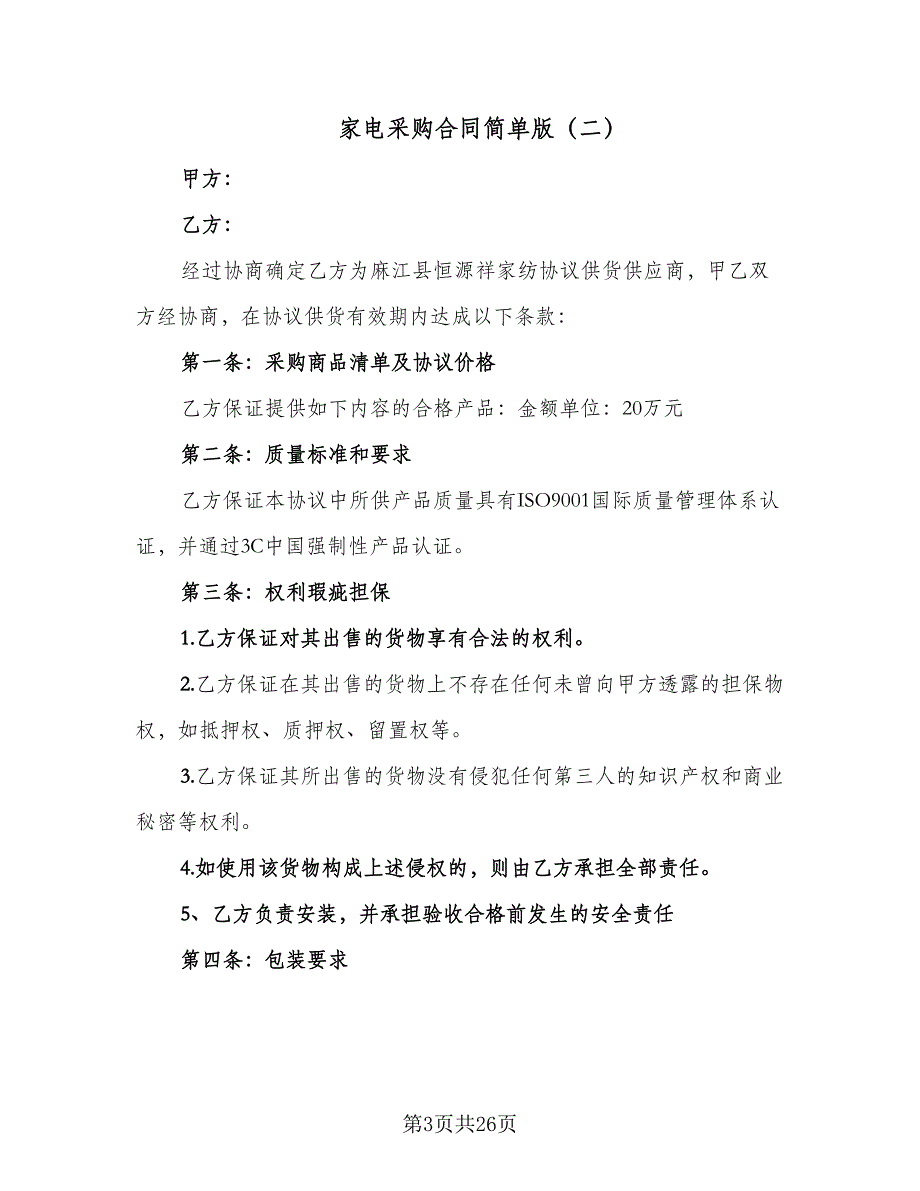 家电采购合同简单版（二）
甲方：
乙方：
经过协商确定乙方为麻江县恒源祥家纺协议供货供应商，甲乙双
方经协商，在协议供货有效期内达成以下条款：
第一条：采购商品清单及协议价格
乙方保证提供如下内容的合格产品：金额单位：20万元
第二条：质量标准和要求
乙方保证本协议中所供产品质量具有ISO9001国际质量管理体系认
证，并通过3C中国强制性产品认证。
第三条：权利瑕疵担保
1.乙方保证对其出售的货物享有合法的权利。
2.乙方保证在其出售的货物上不存在任何未曾向甲方透露的担保物
权，如抵押权、质押权、留置权等。
3.乙方保证其所出售的货物没有侵犯任何第三人的知识产权和商业
秘密等权利。
4.如使用该货物构成上述侵权的，则由乙方承担全部责任。
5、乙方负责安装，并承担验收合格前发生的安全责任
第四条：包装要求
第3页共26页